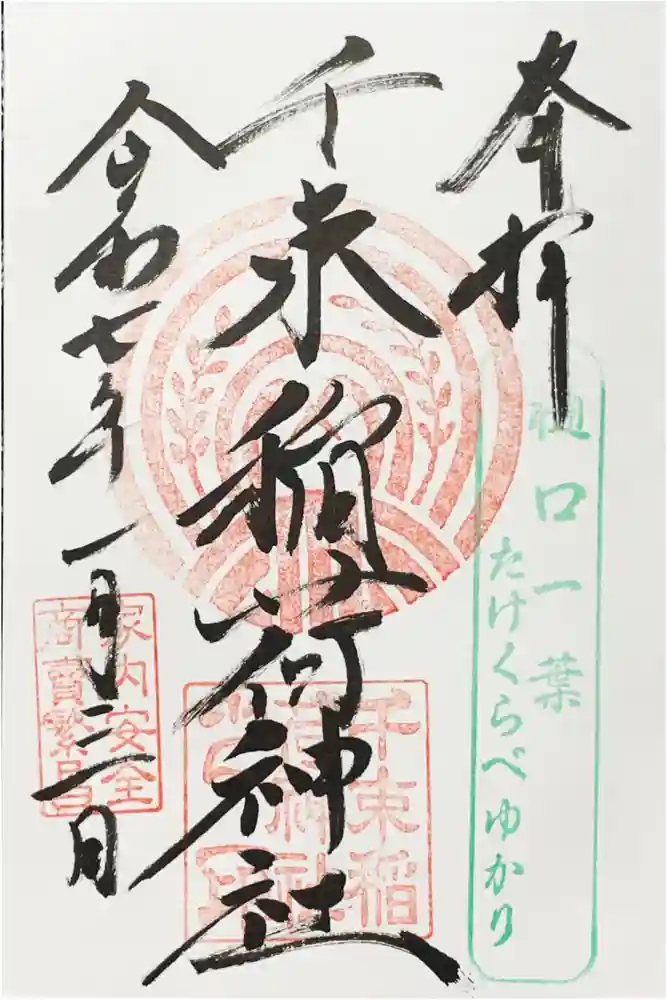 奉拝
樋口一葉
たけくらべゆかり
千束稲荷神社
千束稲
荷神社
令和七年一月三日
家内安全
商賣繁昌